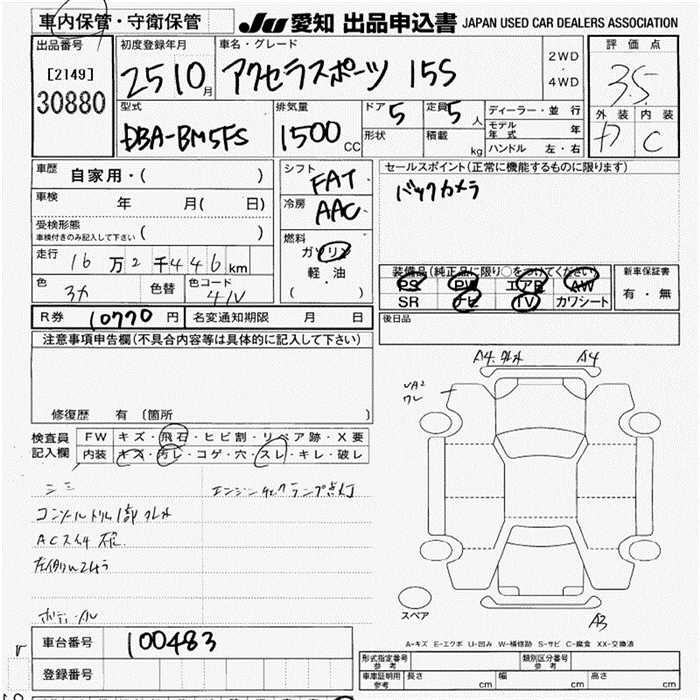 車内保管・守衛保管 JU 愛知 出品申込書 JAPAN USED CAR DEALERS ASSOCIATION
出品番号 初度登録年月 車名・グレード 2WD・4WD 評価点
[2149] 25 10月 アクセラスポーツ 15S 3.5
30880
型式 排気量 ドア 5 定員 5人 ディーラー・並行 外装 内装
DBA-BM5FS 1500CC 形状 積載 kg モデル年式 年 C
ハンドル 左・右
車歴 自家用・( ) シフト FAT セールスポイント(正常に機能するものに限ります)
車検 年 月( 日) 冷房 AAC バックカメラ
受検形態 ( )
車検付きのみ記入して下さい
燃料 ガソリン
走行 16万2千446km 軽・油
装備品(純正品に限り○をつけてください) 新車保証書
PS PW エアB AW 有・無
SR ナビ TV カワシート
色 色替 色コード 41V ( )
R券 10770円 名変通知期限 月 日 後日品
注意事項申告欄(不具合内容等は具体的に記入して下さい)
A4 A4
UA2
修復歴 有 〔箇所 〕
検査員記入欄 FW キズ・飛石・ヒビ割・リペア跡・X要
内装 キズ・汚レ・コゲ・穴・スレ・キレ・破レ
シミ エンジンチェックランプ点灯
スペア
A3
A-キズ E-エクボ U-凹み W-補修跡 S-サビ C-腐食 XX-交換済
車台番号 100483
形式指定番号 参考 類別区分番号 参考
登録番号
車庫証明用 参考 長さ cm 幅 cm 高さ cm